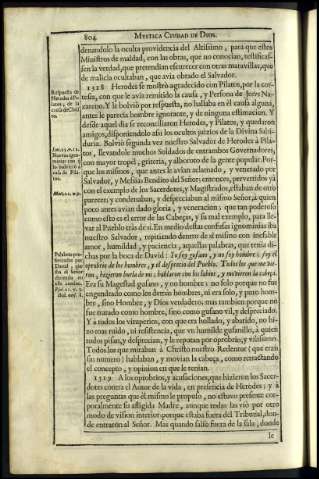 804
MYSTICA CIUDAD DE DIOS.
denandolo la oculta providencia del Altissimo, para que estos
Ministros de maldad, con las obras, que no conocian, testificas-
sen la verdad, que pretendian escurecer con otras maravillas, que
de malicia ocultaban, que avia obrado el Salvador.
1328 Herodes se mostrò agradecido con Pilatos, por la cor-
tesia, con que le avia remitido la causa, y Persona de Jesvs Na-
zareno. Y le bolviò por respuesta, no hallaba en èl causa alguna,
antes le parecia hombre ignorante, y de ninguna estimacion. Y
desde aquel dia se reconciliaron Herodes, y Pilatos, y quedaron
amigos, disponiendolo assi los ocultos juizios de la Divina Sabi-
duria. Bolviò segunda vez nuestro Salvador de Herodes à Pila-
tos, llevandole muchos Soldados de entrambos Governadores,
con mayor tropèl, griteria, y alboroto de la gente popular. Por-
que los mismos, que antes le avian aclamado, y venerado por
Salvador, y Mesias Bendito del Señor; entonces, pervertidos yà
con el exemplo de los Sacerdotes, y Magistrados, estaban de otro
parecer; y condenaban, y despreciaban al mismo Señor, à quien
poco antes avian dado gloria, y veneracion; que tan poderoso
como esto es el error de las Cabeças, y su mal exemplo, para lle-
var al Pueblo tràs de si. En medio destas confusas ignominias iba
nuestro Salvador, repitiendo dentro de sì mismo con inefable
amor, humildad, y paciencia, aquellas palabras, que tenia di-
chas por la boca de David: Yo soy gusano, y no soy hombre; soy el
oprobrio de los hombres, y el desprecio del Pueblo. Todos los que me vie-
ron, hizieron burla de mi; hablaron con los labios, y movieron la cabeça.
Era su Magestad gusano, y no hombre; no solo porque no fue
engendrado como los demàs hombres, ni era solo, y puro hom-
bre, sino Hombre, y Dios verdadero, mas tambien porque no
fue tratado como hombre, sino como gusano vil, y despreciado.
Y à todos los vituperios, con que era hollado, y abatido, no hi-
zo mas ruido, ni resistencia, que vn humilde gusanillo, à quien
todos pisan, y desprecian, y le reputan por oprobrio, y vilissimo.
Todos los que miraban à Christo nuestro Redentor (que eran
sin numero) hablaban, y movian la cabeça, como retractando
el concepto, y opinion en que le tenian.
1329 A los oprobrios, y acusaciones, que hizieron los Sacer-
dotes contra el Autor de la vida, en presencia de Herodes; y à
las preguntas que èl mismo le propuso, no estuvo presente cor-
poralmente su afligida Madre, aunque todas las viò por otro
modo de vision interior; porque estaba fuera del Tribunal, don-
de entraron al Señor. Mas quando saliò fuera de la sala, donde
le
Respuesta de
Herodes à Pi-
latos, de la
causa de Chris-
to.